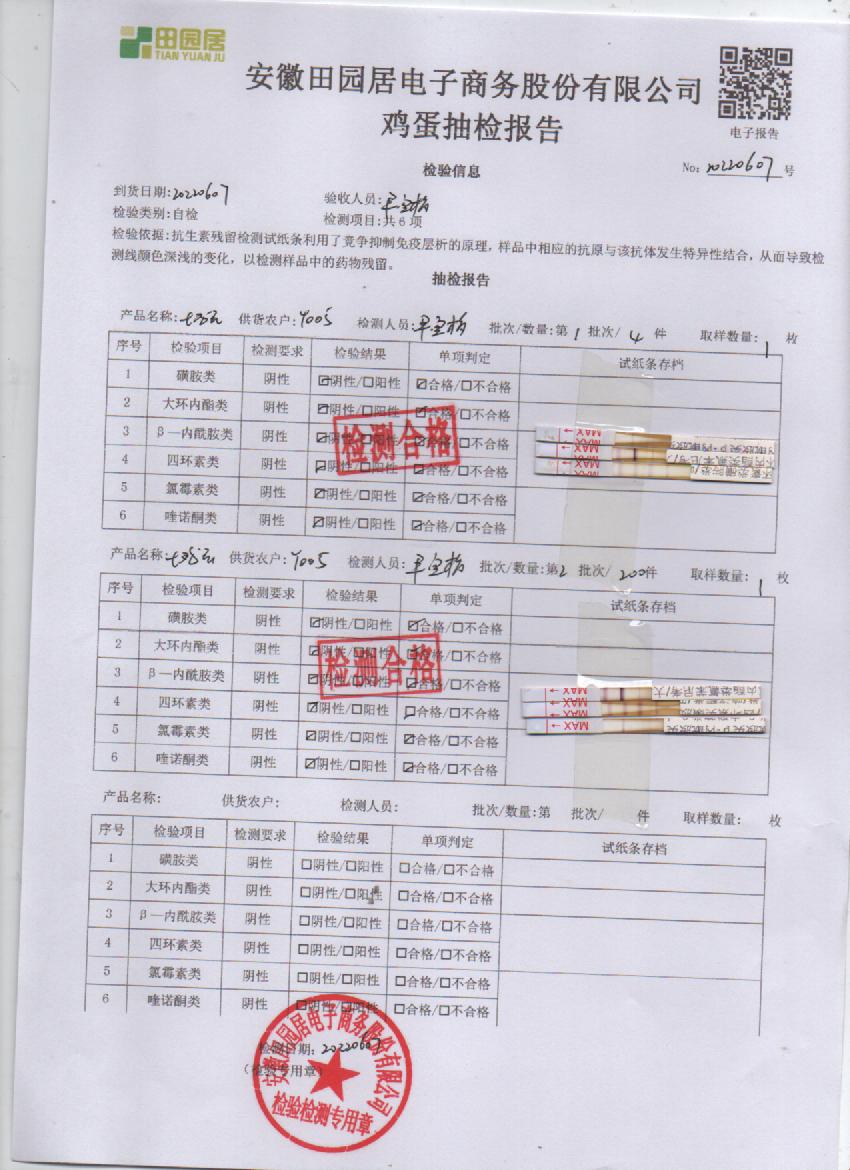 田园居
TIAN YUAN JU
安徽田园居电子商务股份有限公司
鸡蛋抽检报告
电子报告
检验信息
No: 20220607 号
到货日期:20220607 验收人员:
检验类别:自检 检测项目:共6项
检验依据:抗生素残留检测试纸条利用了竞争抑制免疫层析的原理,样品中相应的抗原与该抗体发生特异性结合,从而导致检
测线颜色深浅的变化,以检测样品中的药物残留。
抽检报告
产品名称: 供货农户:Y005 检测人员: 批次/数量:第1批次/4件 取样数量:1枚
序号 检验项目 检测要求 检验结果 单项判定 试纸条存档
1 磺胺类 阴性 ☑阴性/□阳性 ☑合格/□不合格
2 大环内酯类 阴性 ☑阴性/□阳性 ☑合格/□不合格
3 β—内酰胺类 阴性 ☑阴性/□阳性 ☑合格/□不合格
4 四环素类 阴性 ☑阴性/□阳性 ☑合格/□不合格
5 氯霉素类 阴性 ☑阴性/□阳性 ☑合格/□不合格
6 喹诺酮类 阴性 ☑阴性/□阳性 ☑合格/□不合格
检测合格
MAX
MAX
MAX
产品名称: 供货农户:Y005 检测人员: 批次/数量:第2批次/200件 取样数量:1枚
序号 检验项目 检测要求 检验结果 单项判定 试纸条存档
1 磺胺类 阴性 ☑阴性/□阳性 ☑合格/□不合格
2 大环内酯类 阴性 ☑阴性/□阳性 ☑合格/□不合格
3 β—内酰胺类 阴性 ☑阴性/□阳性 ☑合格/□不合格
4 四环素类 阴性 ☑阴性/□阳性 ☑合格/□不合格
5 氯霉素类 阴性 ☑阴性/□阳性 ☑合格/□不合格
6 喹诺酮类 阴性 ☑阴性/□阳性 ☑合格/□不合格
检测合格
MAX
MAX
MAX
产品名称: 供货农户: 检测人员: 批次/数量:第 批次/ 件 取样数量: 枚
序号 检验项目 检测要求 检验结果 单项判定 试纸条存档
1 磺胺类 阴性 □阴性/□阳性 □合格/□不合格
2 大环内酯类 阴性 □阴性/□阳性 □合格/□不合格
3 β—内酰胺类 阴性 □阴性/□阳性 □合格/□不合格
4 四环素类 阴性 □阴性/□阳性 □合格/□不合格
5 氯霉素类 阴性 □阴性/□阳性 □合格/□不合格
6 喹诺酮类 阴性 □阴性/□阳性 □合格/□不合格
检测日期:20220607
(检验专用章)
安徽田园居电子商务股份有限公司
检验检测专用章